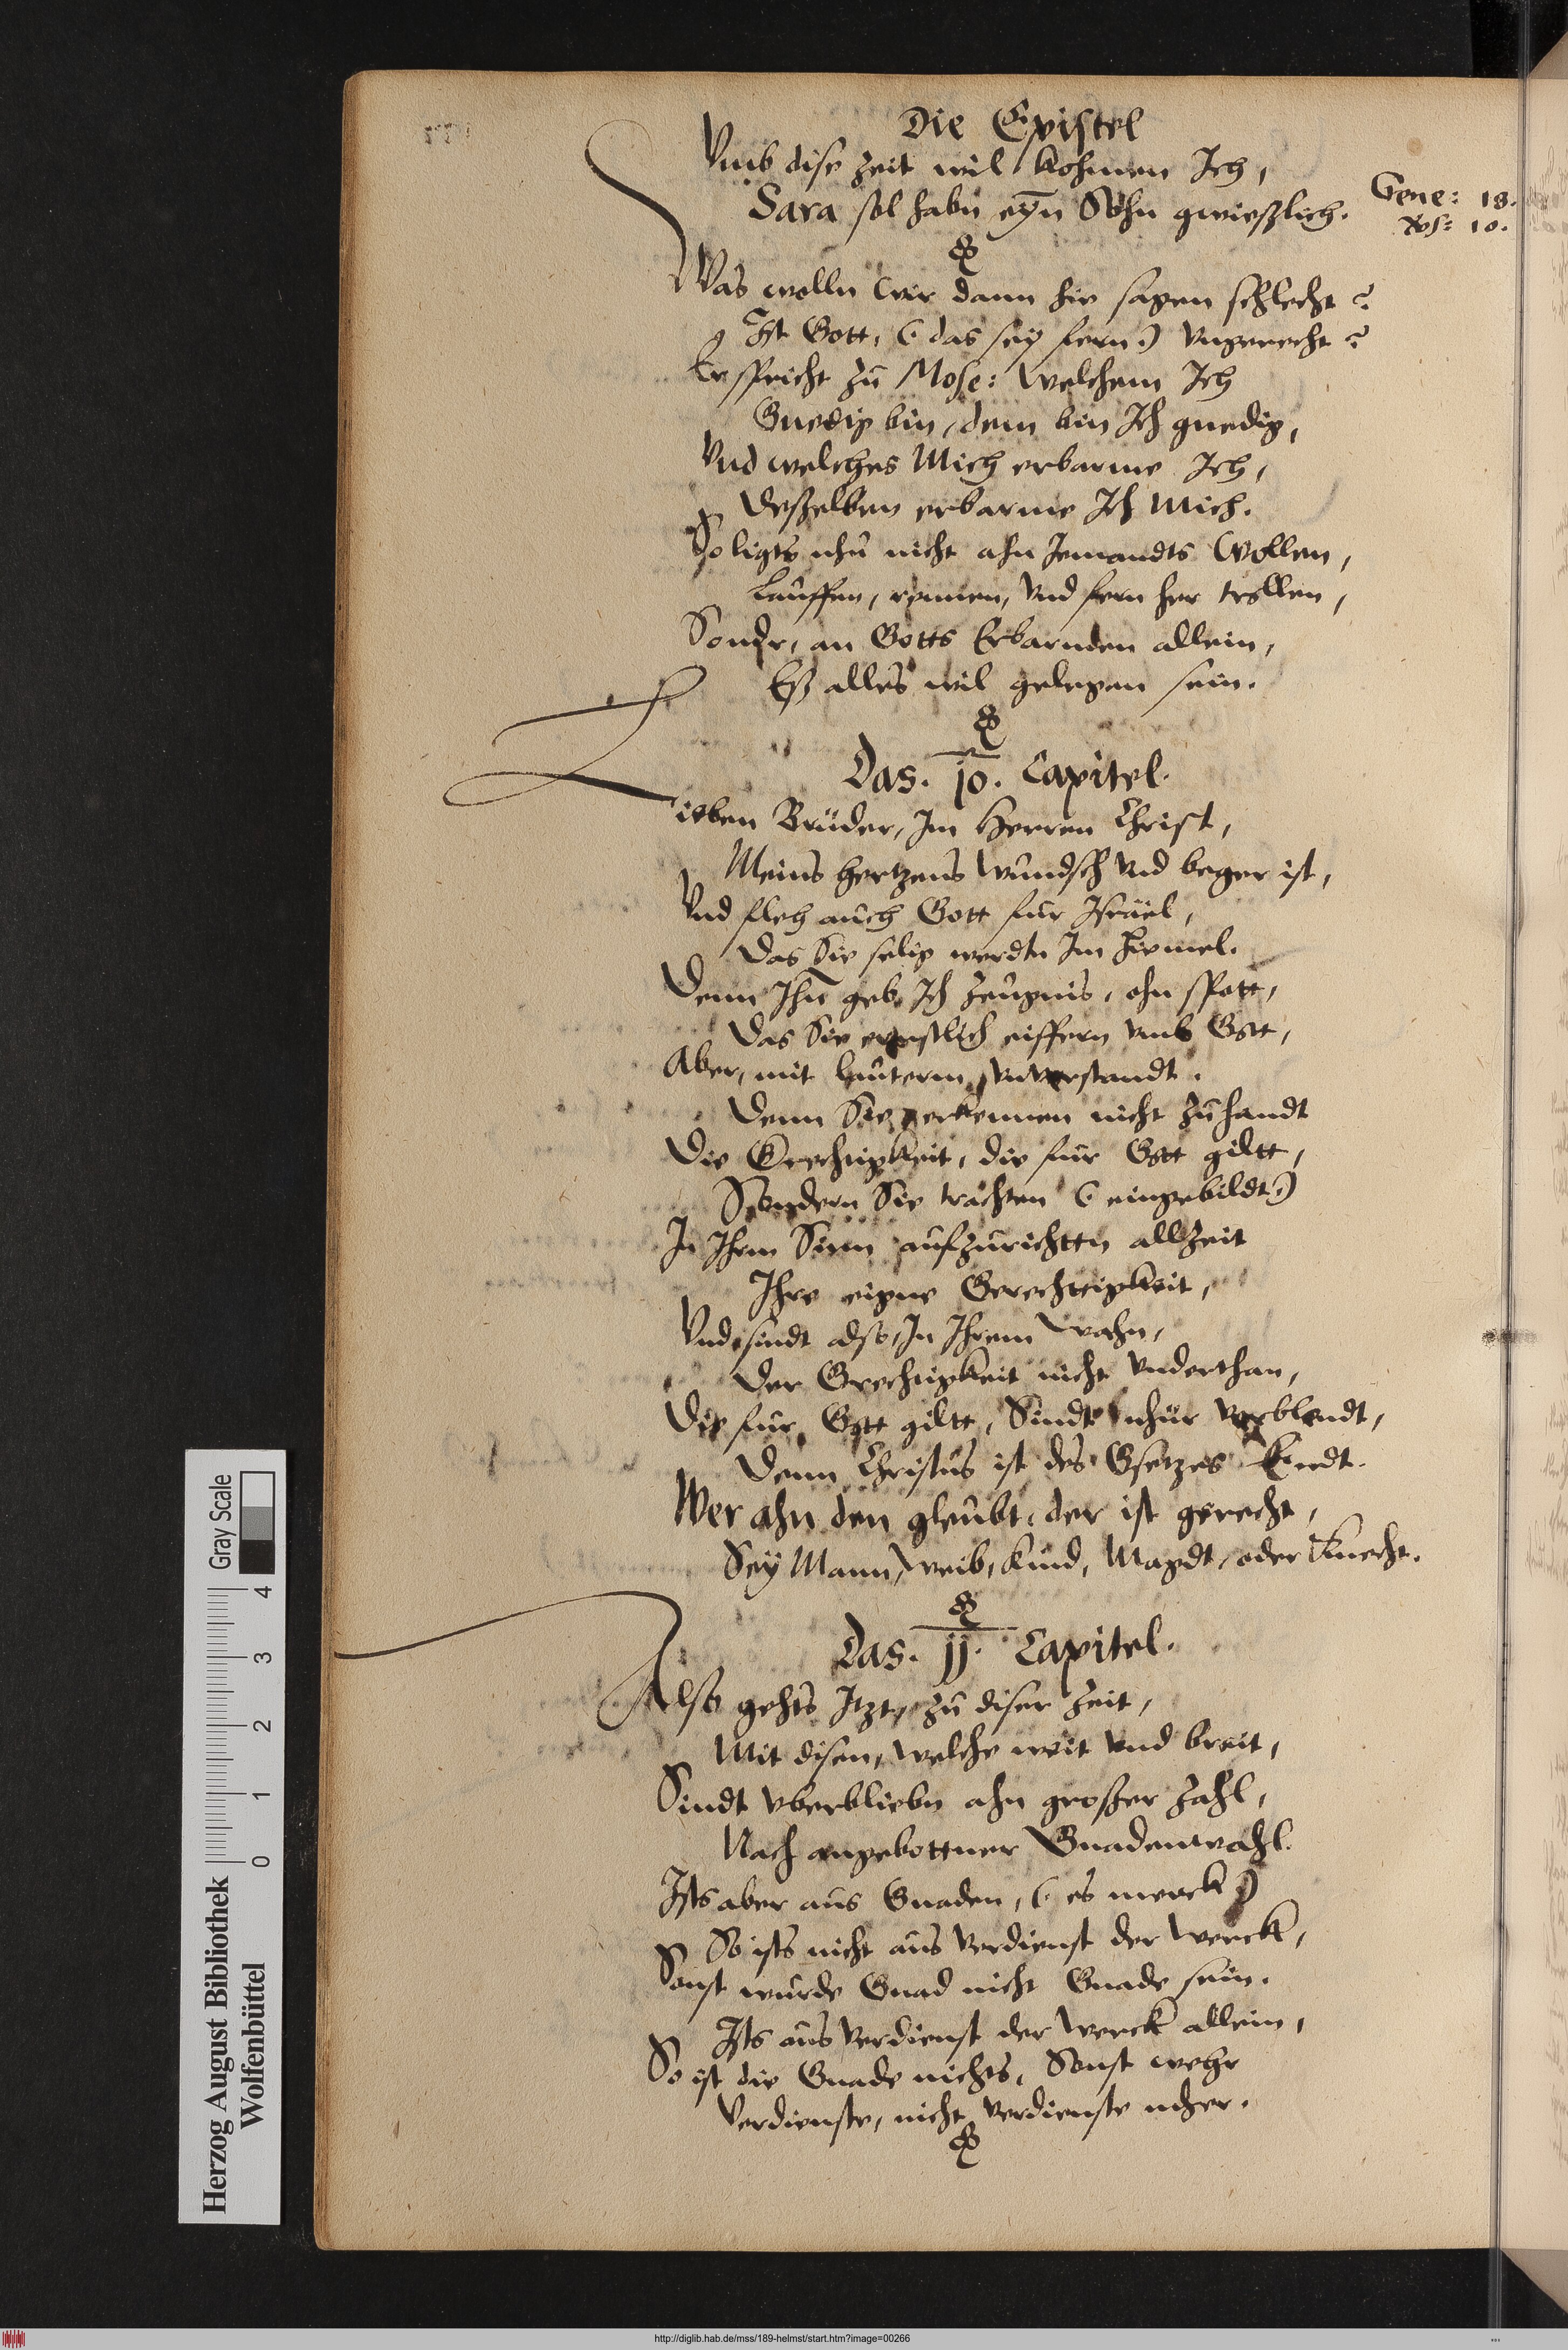 Die Epistel
Vmb dise zeit wil kohmen Ich,
Sara sol habn eyn Sohn gwießlich.
Gene: 18.
Vs: 10.
Was wolln wir dann hie sagen schlecht?
Ist Gott, (das sey fern) vngerecht?
Er spricht zu Mose: Welchem Ich
Gnedig bin, dem bin Ich gnedig,
Vnd welches Mich erbarme Ich,
Deßelben erbarme Ich Mich.
So ligts nhu nicht ahn Jemandts Wollen,
Lauffen, rennen, vnd fern her trollen,
Sondr, an Gotts Erbarmden allein,
Eß alles wil gelegen sein.
Das. 10. Capitel.
Lieben Brüder, Im Herren Christ,
Meins hertzens Wundsch vnd beger ist,
Vnd fleh auch Gott fur Israël,
Das Sie selig werdn Im Himel.
Denn Ihn geb Ich Zeugnis, ohn spott,
Das Sie ernstlich eiffern vmb Gott,
Aber, mit lauterm vnverstandt.
Denn Sie erkennen nicht zuhandt
Die Grechtigkeit, die fur Gott giltt,
Sondern Sie trachten (eingebildt)
In Ihrm Sinn aufzurichten allzeit
Ihre eigne Gerechtigkeit,
Vnd sindt also, In Ihrem Wahn,
Der Grechtigkeit nicht vnderthan,
Die fur Gott giltt, Sindt nhur verblendt,
Denn Christus ist des Gsetzes Endt.
Wer ahn den gleubt, der ist gerecht,
Sey Mann, Weib, Kind, Magdt, oder Knecht.
Das. 11. Capitel.
Also gehts Itzt, zu diser Zeit,
Mit disen, welche weit vnd breit,
Sindt vberbliebn ahn großer Zahl,
Nach angebottner Gnadenwahl.
Ists aber aus Gnaden, (es merck)
So ists nicht aus Verdienst der Werck,
Sonst wurde Gnad nicht Gnade sein.
Ists aus Verdienst der Werck allein,
So ist die Gnade nichts, Sonst wehr
Verdienste, nicht Verdienste mher.
Herzog August Bibliothek
Wolfenbüttel
0 1 2 3 4
Gray Scale
http://diglib.hab.de/mss/189-helmst/start.htm?image=00266